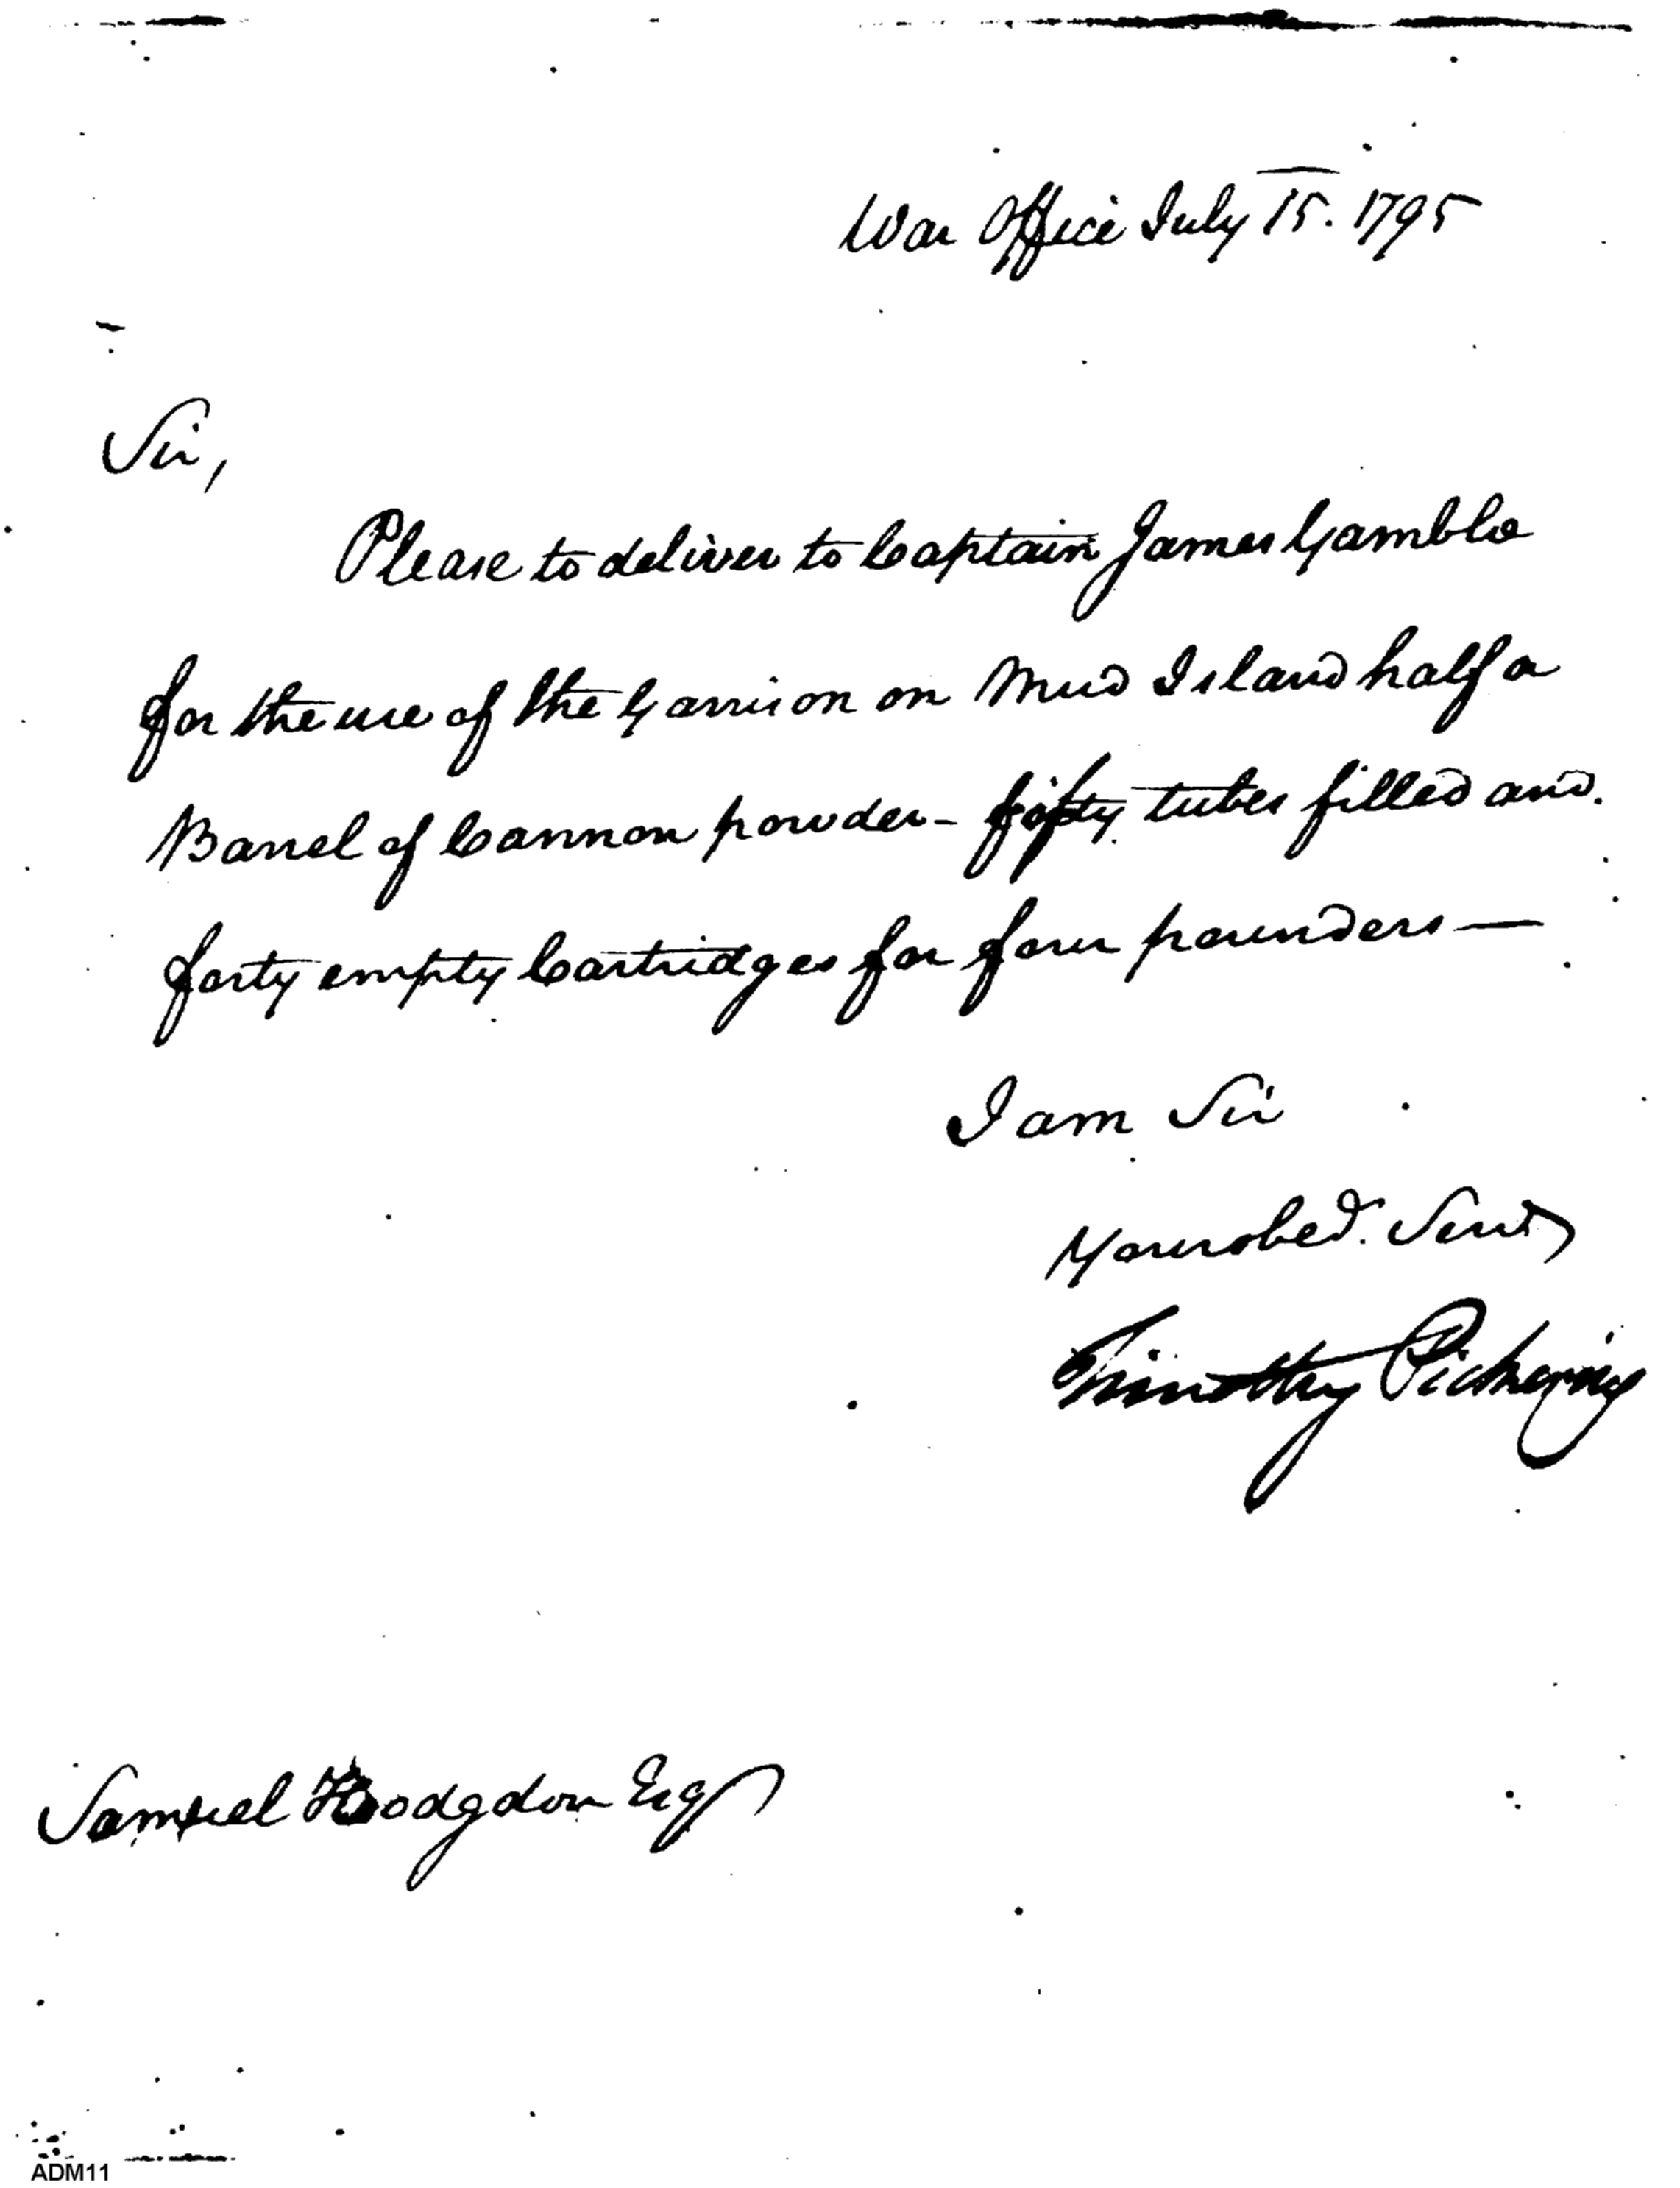 War Office July 15. 1795
Sir,
Please to deliver to Captain James Gamble
for the use of the Garrison on Mud Island half a
Barrel of Cannon powder - fifty tubes filled and
forty empty Cartridges for four pounders —
I am Sir
Your obed. Servt
Timothy Pickering
Samuel Hodgdon Esq
ADM11